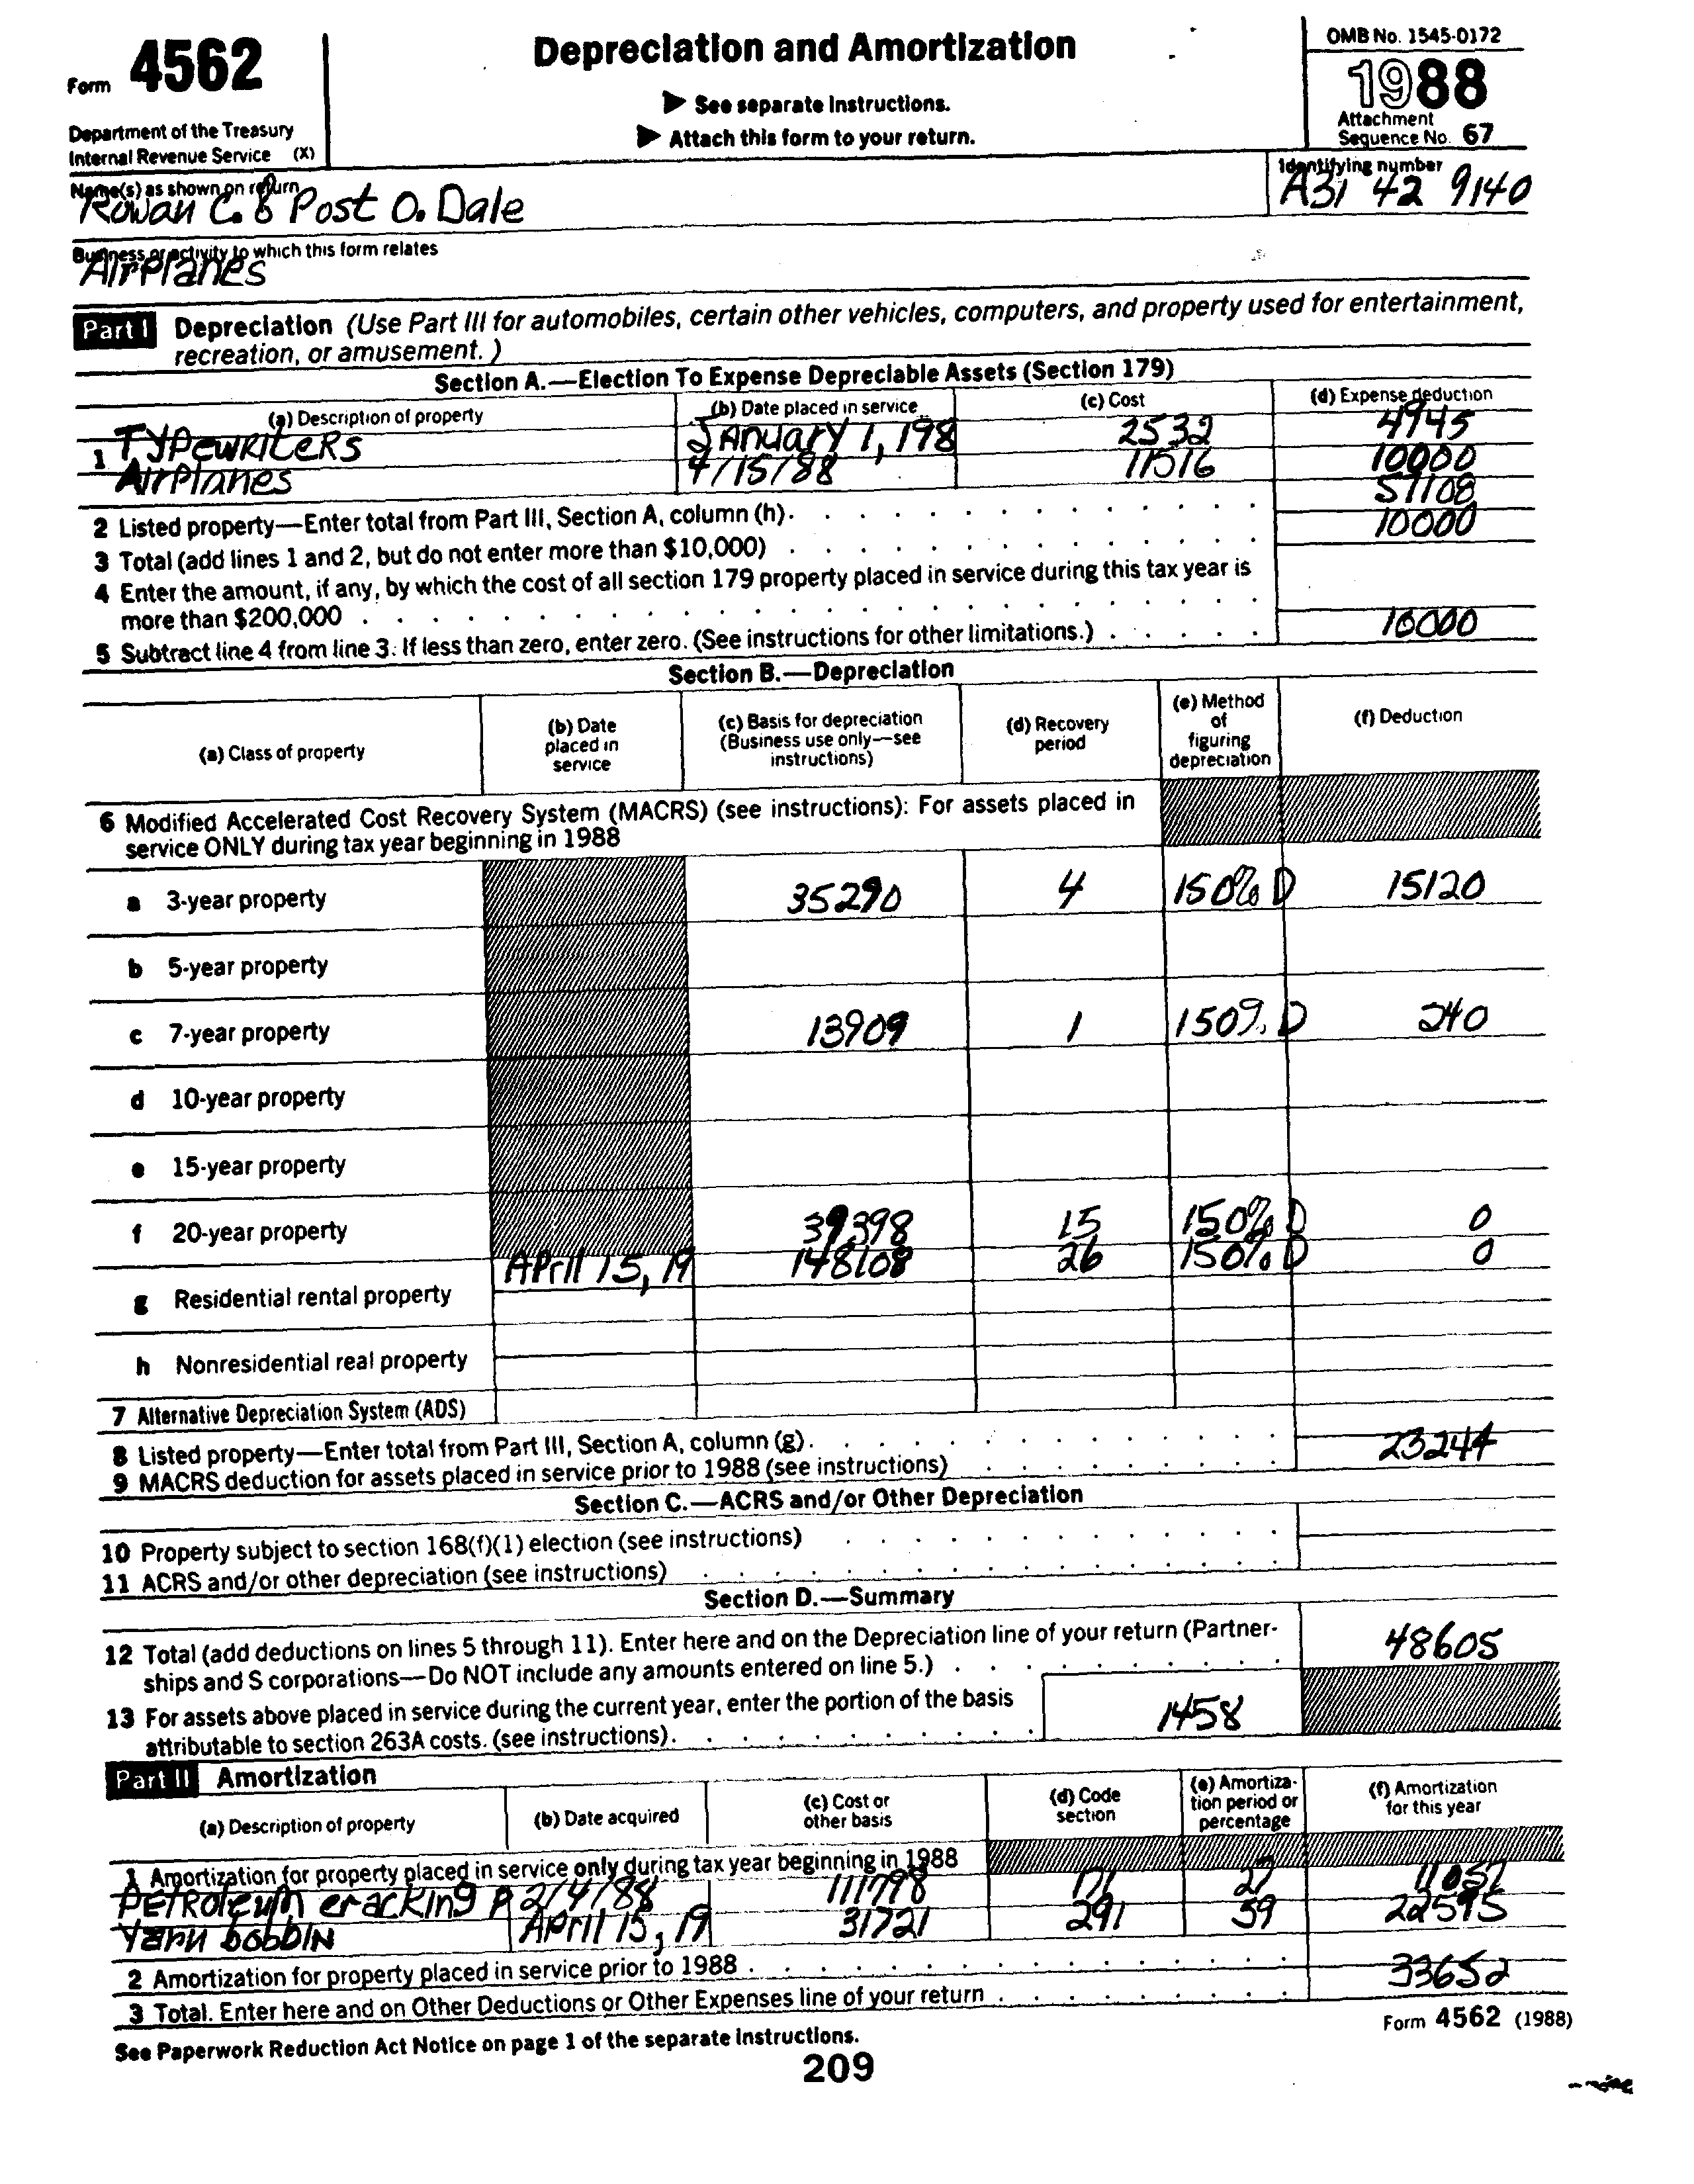 Form 4562
Department of the Treasury
Internal Revenue Service (X)
Depreciation and Amortization
▶ See separate Instructions.
▶ Attach this form to your return.
OMB No. 1545-0172
1988
Attachment
Sequence No. 67
Name(s) as shown on return
Rowan C. & Post O. Dale
Identifying number
A31 42 9140
Business or activity to which this form relates
Airplanes
Part I Depreciation (Use Part III for automobiles, certain other vehicles, computers, and property used for entertainment,
recreation, or amusement.)
Section A.—Election To Expense Depreciable Assets (Section 179)
(a) Description of property (b) Date placed in service (c) Cost (d) Expense deduction
1 TYPEWRITERS January 1, 198 2532 4945
AirPlanes 4/15/88 11516 10000
2 Listed property—Enter total from Part III, Section A, column (h). 57108
3 Total (add lines 1 and 2, but do not enter more than $10,000) 10000
4 Enter the amount, if any, by which the cost of all section 179 property placed in service during this tax year is
more than $200,000
5 Subtract line 4 from line 3. If less than zero, enter zero. (See instructions for other limitations.) 10000
Section B.—Depreciation
(a) Class of property (b) Date placed in service (c) Basis for depreciation (Business use only—see instructions) (d) Recovery period (e) Method of figuring depreciation (f) Deduction
6 Modified Accelerated Cost Recovery System (MACRS) (see instructions): For assets placed in
service ONLY during tax year beginning in 1988
a 3-year property 35290 4 150% D 15120
b 5-year property
c 7-year property 13909 1 150% D 240
d 10-year property
e 15-year property
f 20-year property 39398 15 150% D 0
April 15, 19 148108 26 150% D 0
g Residential rental property
h Nonresidential real property
7 Alternative Depreciation System (ADS)
8 Listed property—Enter total from Part III, Section A, column (g). 23244
9 MACRS deduction for assets placed in service prior to 1988 (see instructions)
Section C.—ACRS and/or Other Depreciation
10 Property subject to section 168(f)(1) election (see instructions)
11 ACRS and/or other depreciation (see instructions)
Section D.—Summary
12 Total (add deductions on lines 5 through 11). Enter here and on the Depreciation line of your return (Partner-
ships and S corporations—Do NOT include any amounts entered on line 5.) 48605
13 For assets above placed in service during the current year, enter the portion of the basis
attributable to section 263A costs. (see instructions). 1458
Part II Amortization
(a) Description of property (b) Date acquired (c) Cost or other basis (d) Code section (e) Amortiza-tion period or percentage (f) Amortization for this year
1 Amortization for property placed in service only during tax year beginning in 1988
PETROleum cracking P 2/4/88 111798 171 27 11057
Yarn bobbin April 15, 19 31721 291 59 22595
2 Amortization for property placed in service prior to 1988
3 Total. Enter here and on Other Deductions or Other Expenses line of your return 33652
See Paperwork Reduction Act Notice on page 1 of the separate instructions.
Form 4562 (1988)
209